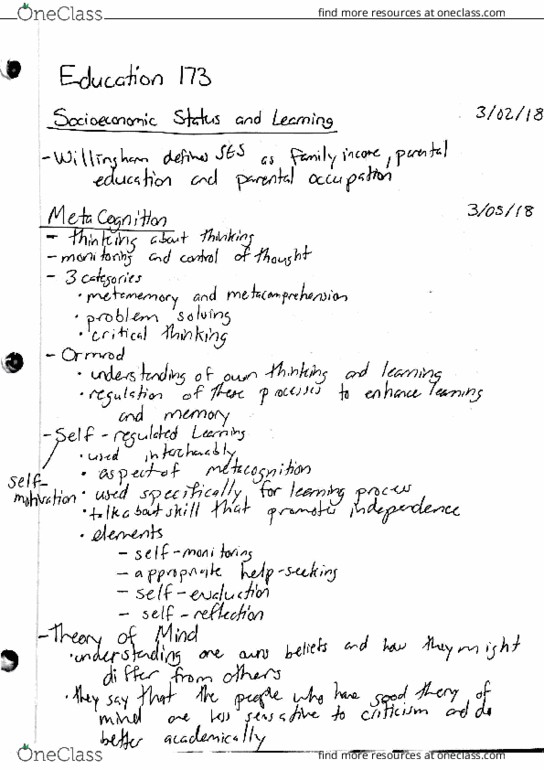 OneClass
find more resources at oneclass.com
Education 173
Socioeconomic Status and Learning
3/02/18
- Willingham defines SES as family income, parental
education and parental occupation
MetaCognition
3/05/18
- thinking about thinking
- monitoring and control of thought
- 3 categories
• metamemory and metacomprehension
• problem solving
• critical thinking
- Ormrod
• understanding of own thinking and learning
• regulation of these processes to enhance learning
and memory
- Self-regulated Learning
• used
• aspect of metacognition
self-
motivation
• used specifically for learning process
• talk about skill that promotes independence
• elements
- self-monitoring
- appropriate help-seeking
- self-evaluation
- self-reflection
- Theory of Mind
• understanding one owns beliefs and how they might
differ from others
• they say that the people who have good theory of
mind are less sensative to criticism and do
better academically
OneClass
find more resources at oneclass.com